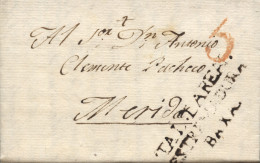 Al Sor Dn Antonio
Clemente Pacheco
6
Merida
ESTREMADURA
BAXA